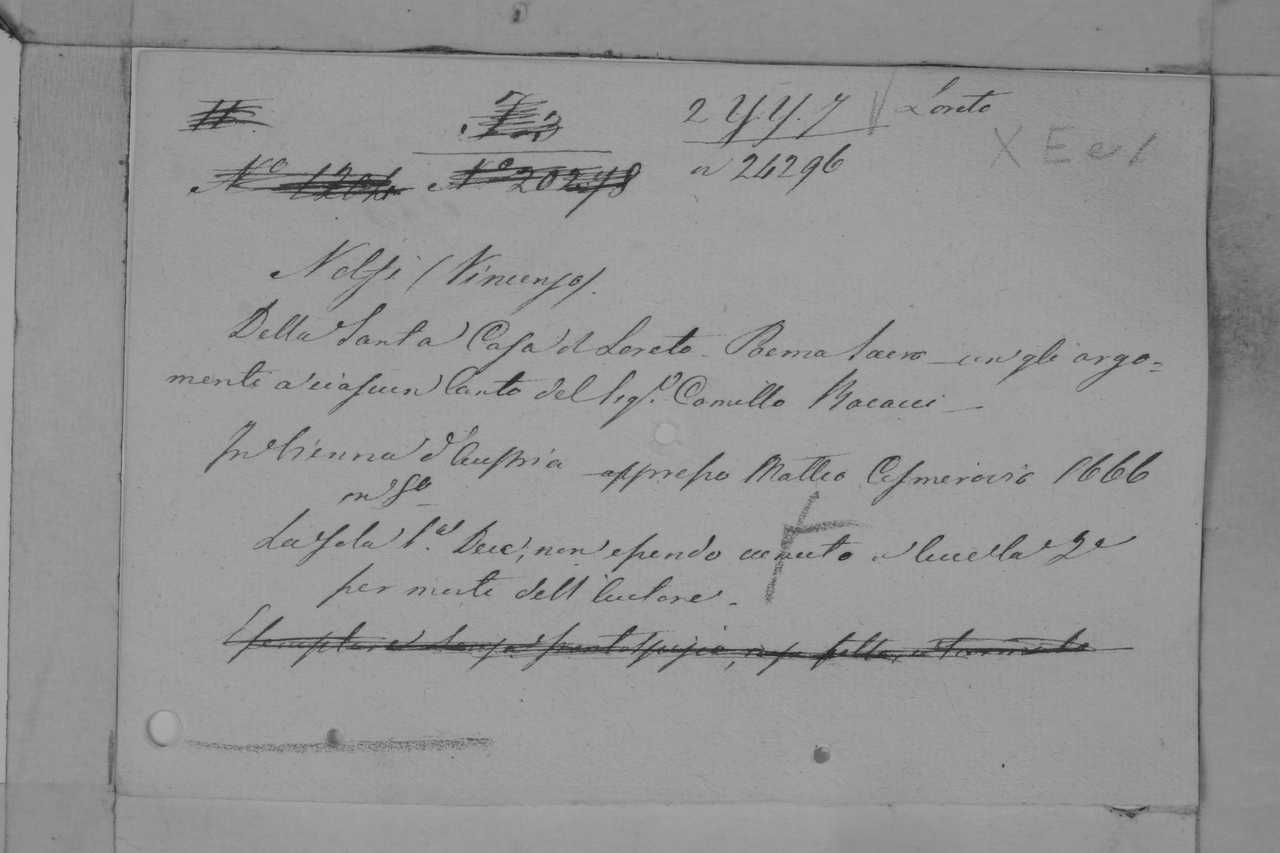 2 Y.Y.7 Loreto
X E e 1
N° 20278 a 24296
Nolfi (Vincenzo).
Della Santa Casa di Loreto. Poema Sacro con gli argo=
menti a ciascun Canto del Sig.r Camillo
In Vienna d'Austria appresso Matteo Cosmerovio 1666
in 8°
La sola P.a Dec., non essendo venuto a luce la 2a
per morte dell'Autore.